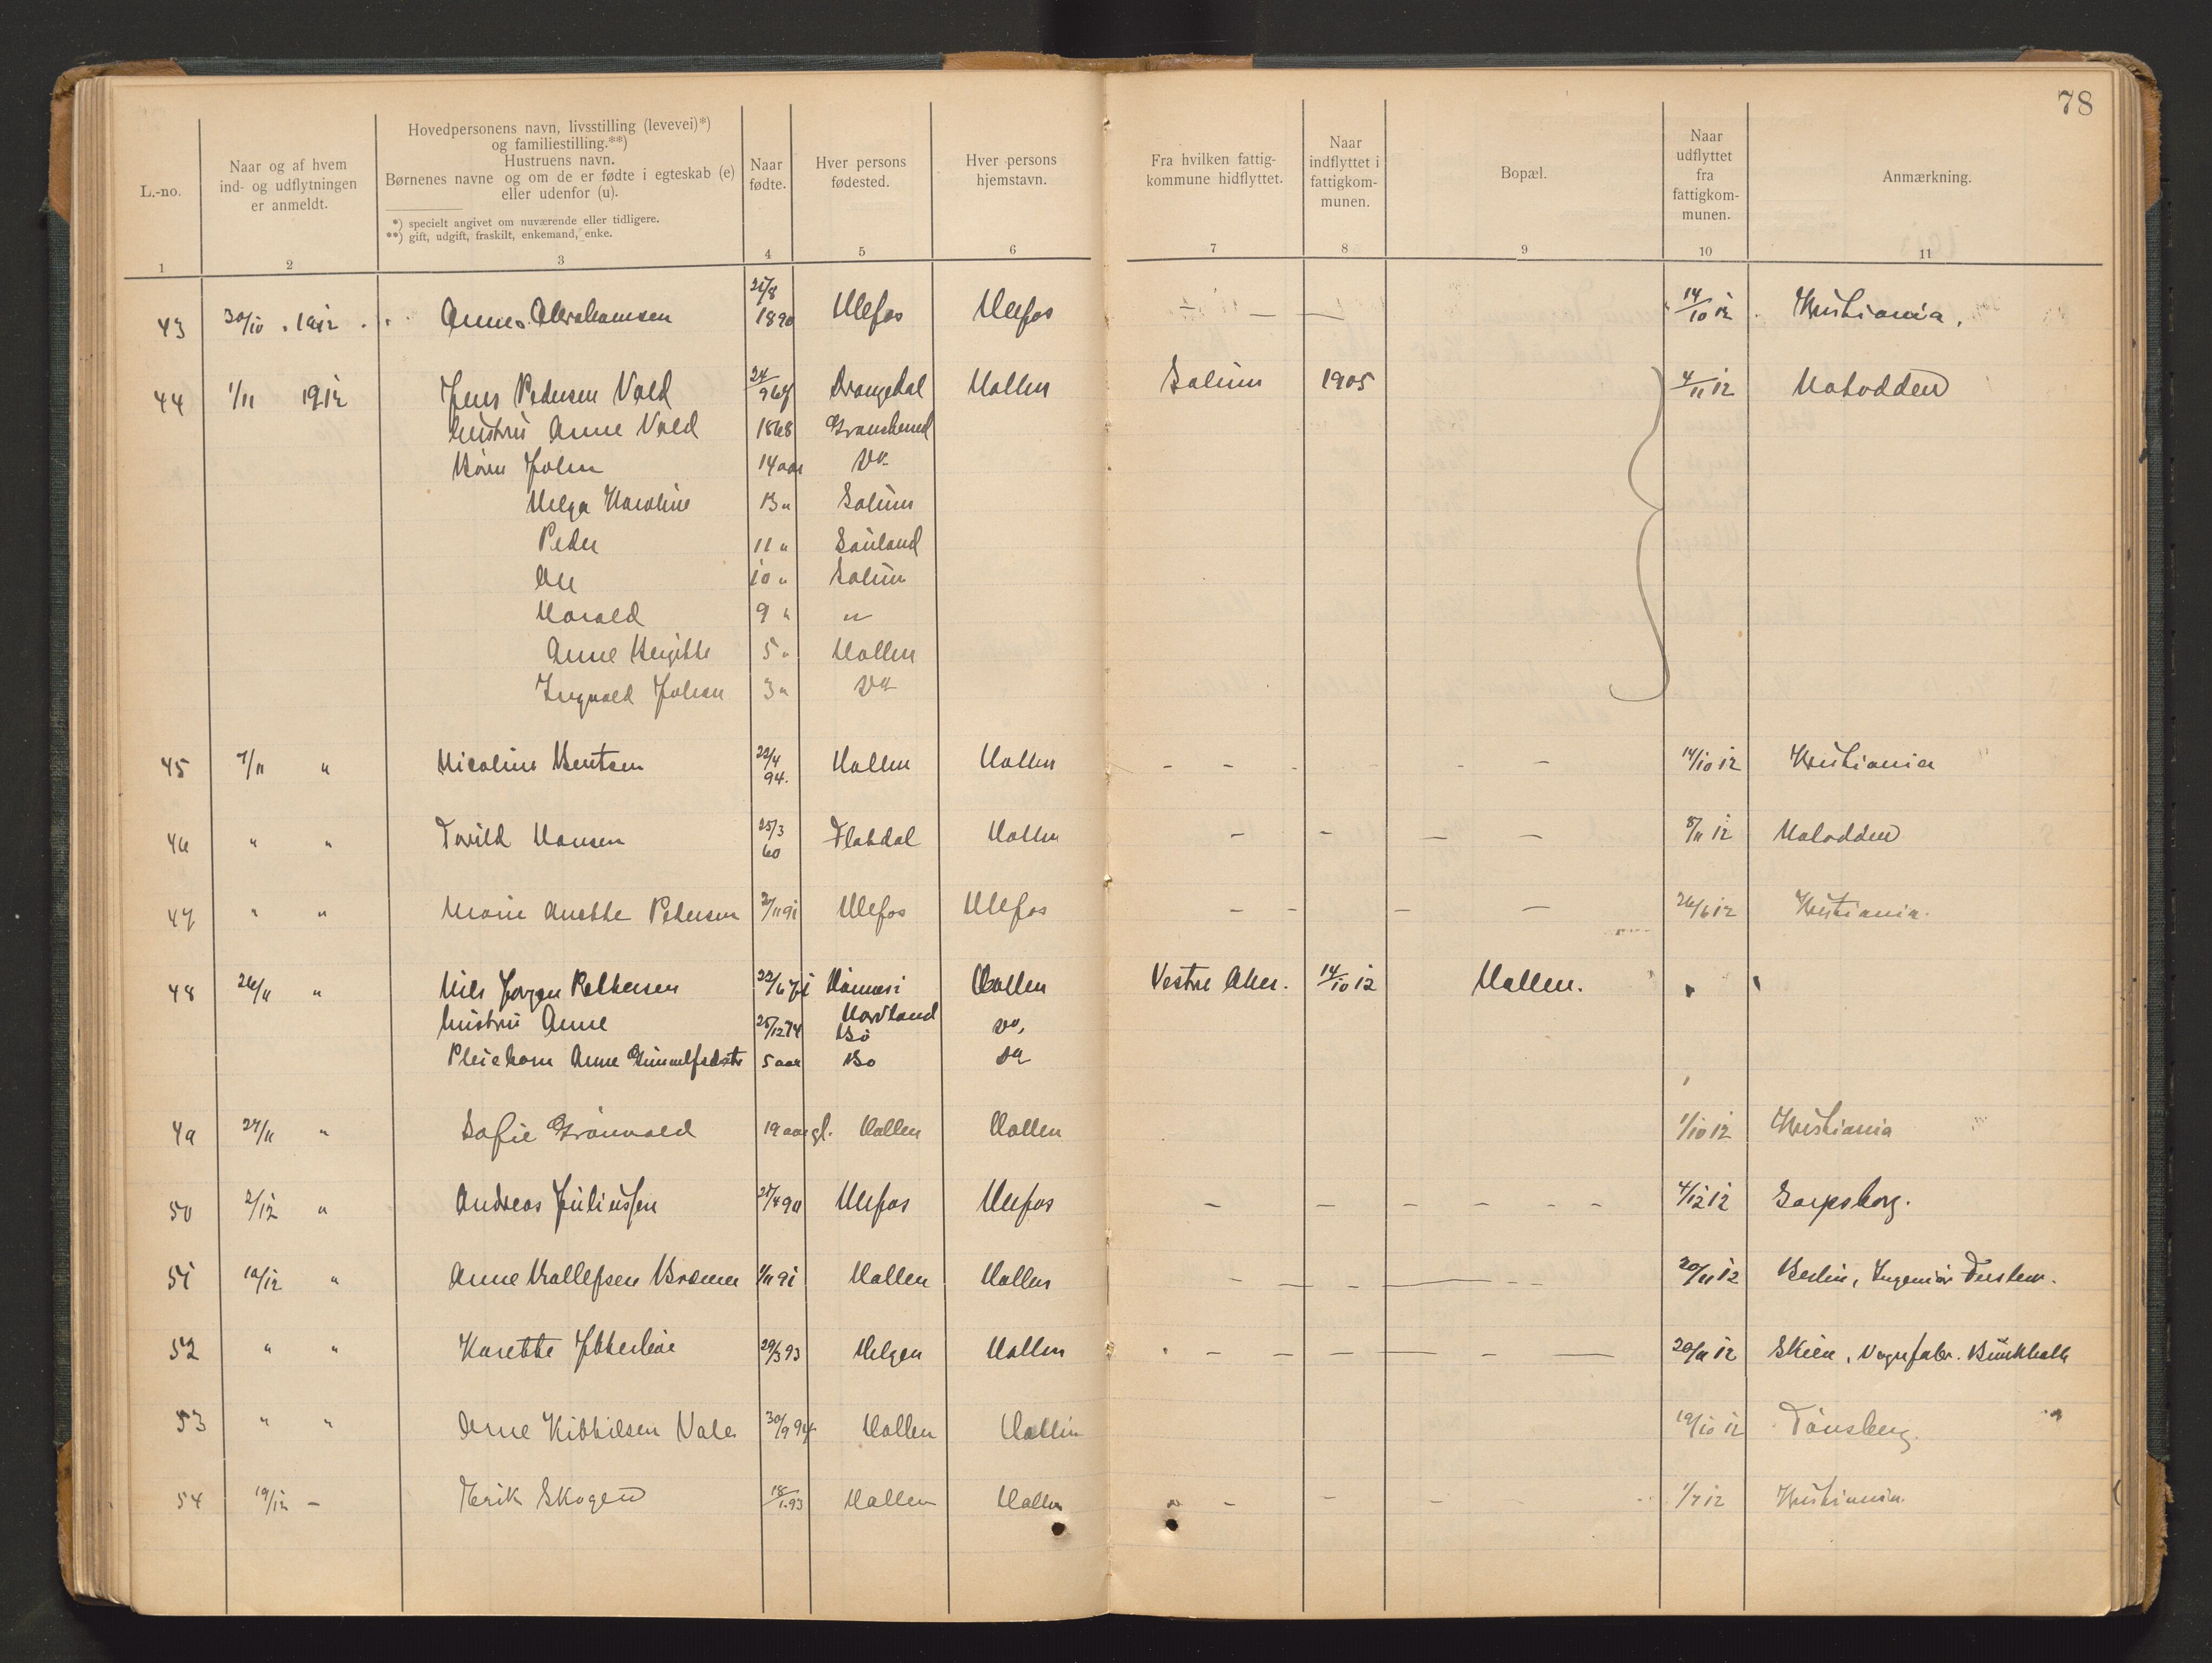 78
L.-no.
Naar og af hvem ind- og udflytningen er anmeldt.
Hovedpersonens navn, livsstilling (levevei)*) og familiestilling.**)
Hustruens navn.
Børnenes navne og om de er fødte i egteskab (e) eller udenfor (u).
*) specielt angivet om nuværende eller tidligere.
**) gift, udgift, fraskilt, enkemand, enke.
Naar fødte.
Hver persons fødested.
Hver persons hjemstavn.
Fra hvilken fattigkommune hidflyttet.
Naar indflyttet i fattigkommunen.
Bopæl.
Naar udflyttet fra fattigkommunen.
Anmærkning.
1 2 3 4 5 6 7 8 9 10 11
43 30/10 1912 Abrahamsen 1890 Ulefos Ulefos — — — 14/10 12 Kristiania.
44 1/11 1912 Jens Pedersen Vold 24/9 67 Drangedal Hollen Solum 1905 4/11 12 Notodden
hustru Anne Vold 1868 Gransherred
Børn Johan 14 aar Do
Helga Karoline 13 " Solum
Peder 11 " Sauland
Ole 10 " Solum
Harald 9 " "
Anne Birgitte 5 " Hollen
Ingvald Johan 3 " Do
45 7/11 " Nicoline Bentsen 22/4 94. Hollen Hollen — — — — 14/10 12 Kristiania
46 " " Tovild Hansen 25/3 60 Flatdal Hollen — — — — 8/11 12 Notodden
47 " " Marie Anette Pedersen 2/11 91 Ulefos Ulefos — — — — 26/6 12 Kristiania.
48 26/11 " Nils Jørgen Pettersen Hollen Vestre Aker. 14/10 12 Hollen.
hustru Anne 25/12 74 Nordland Bø Do,
Pleiebarn Anne 5 aar Bø Do
49 27/11 " Sofie Grønvold 19 aar gl. Hollen Hollen 1/10 12 Kristiania
50 2/12 " Andreas Juliussen Ulefos Ulefos — — — — — — 4/12 12 Sarpsborg.
51 10/12 " Anne 1/11 91 Hollen Hollen — — — — — — 20/11 12 Berlin, Ingeniør
52 " " Karette 29/3 93 Helgen Hollen — — — — — — 20/11 12 Skien, Vognfabr.
53 " " Arne Kittilsen 30/9 94 Hollen Hollen 19/10 12 Tønsberg.
54 19/12 — Erik Skogen 18/1. 93 Hollen Hollen — — — 1/7 12 Kristiania.